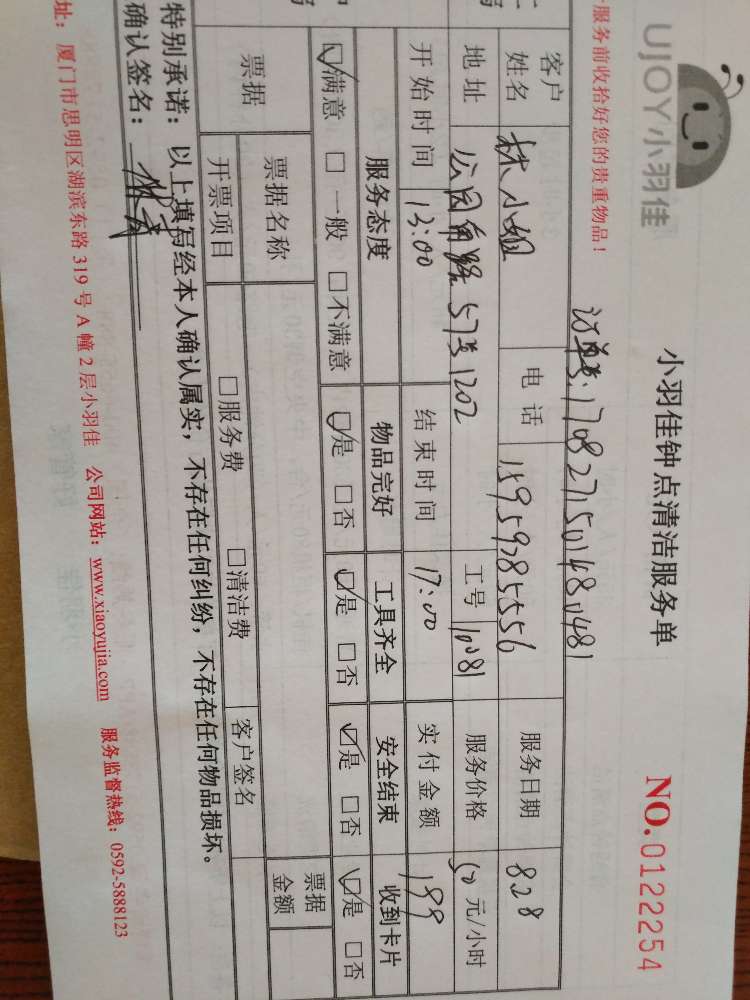 UJOY小羽佳
小羽佳钟点清洁服务单
NO.0122254
服务前收拾好您的贵重物品!
订单号:1708271501480481
客户姓名 林小姐 电话 15959285556 服务日期 8.28
地址 公园南路57号1202 工号 10081 服务价格 50元/小时
开始时间 13:00 结束时间 17:00 实付金额 199
服务态度 物品完好 工具齐全 安全结束 收到卡片
☑满意 □一般 □不满意 ☑是 □否 ☑是 □否 ☑是 □否 ☑是 □否
票据 票据名称 票据金额
开票项目 □服务费 □清洁费 客户签名
特别承诺:以上填写经本人确认属实,不存在任何纠纷,不存在任何物品损坏。
确认签名:
址:厦门市思明区湖滨东路319号A幢2层小羽佳 公司网站:www.xiaoyujia.com 服务监督热线:0592-5888123